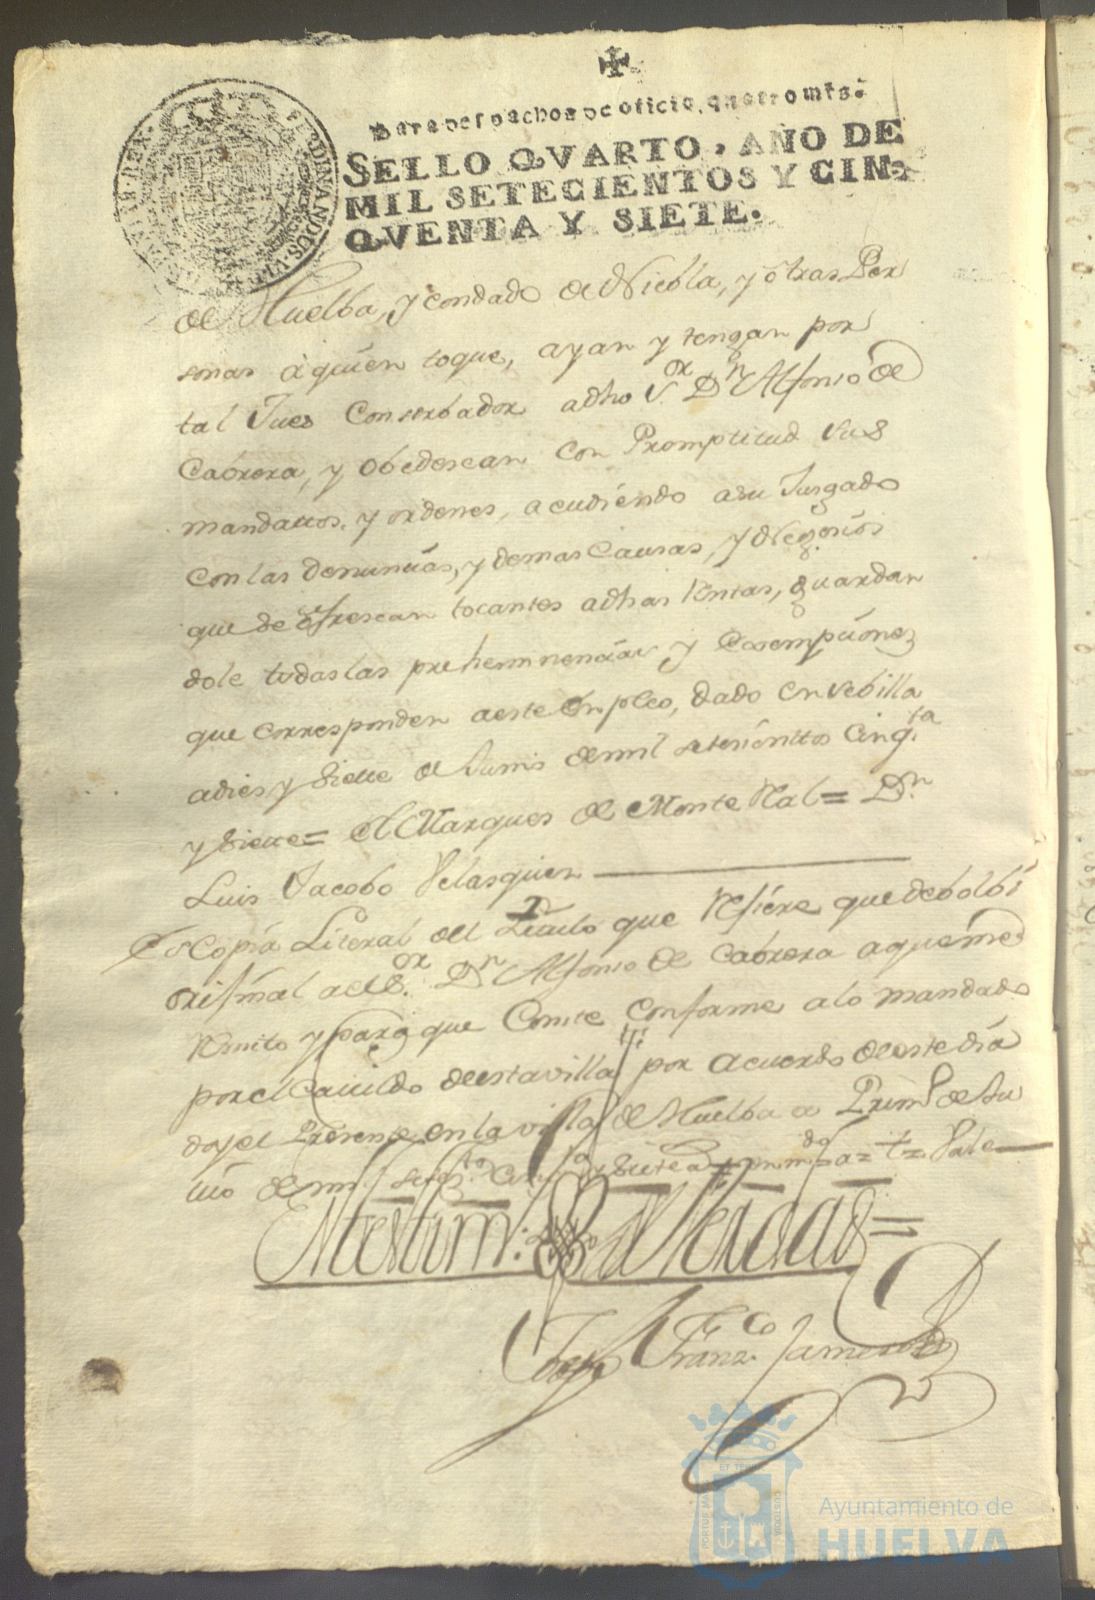 ✠
Para despachos de oficio, quatro mrs.
SELLO QVARTO, AÑO DE
MIL SETECIENTOS Y CIN-
QVENTA Y SIETE.
FERDINANDUS VI
REX
de Huelba, y condado de Niebla, y otras Per
sonas a quien toque, ayan y tengan por
tal Juez Conserbador adho Sor. Dn Alfonso de
Cabrera, y obedescan con Promptitud sus
mandattos, y ordenes, acudiendo a su Jusgado
con las denuncias, y demas Causas, y Negosios
que se ofrescan tocantes adhas Rentas, guardan
dole todas las prehemmenencias y Exsempciones
que corresponden aeste Enpleo, dado en Sebilla
adies y Siette de Junio de mil setesienttos Cinqta
y Siette= El Marques de Monte Real= Dn.
Luis Jacobo Velasques
Es Copia Literal del Titulo que Refiere que debolbi
original al Sor. Dn Alfonso de Cabrera a que me
Remito y para que Conste conforme a lo mandado
por el Cauildo de esta villa por acuerdo de este dia
doy el Presente en la villa de Huelba a Primo de Ju
lio de mil setesos Cinqta y Siette a = t= Vale
En testim.o de Verdad=
Joseph Franco
ET TERRAE
PORTUS MARIS
CUSTODIA
Ayuntamiento de
HUELVA